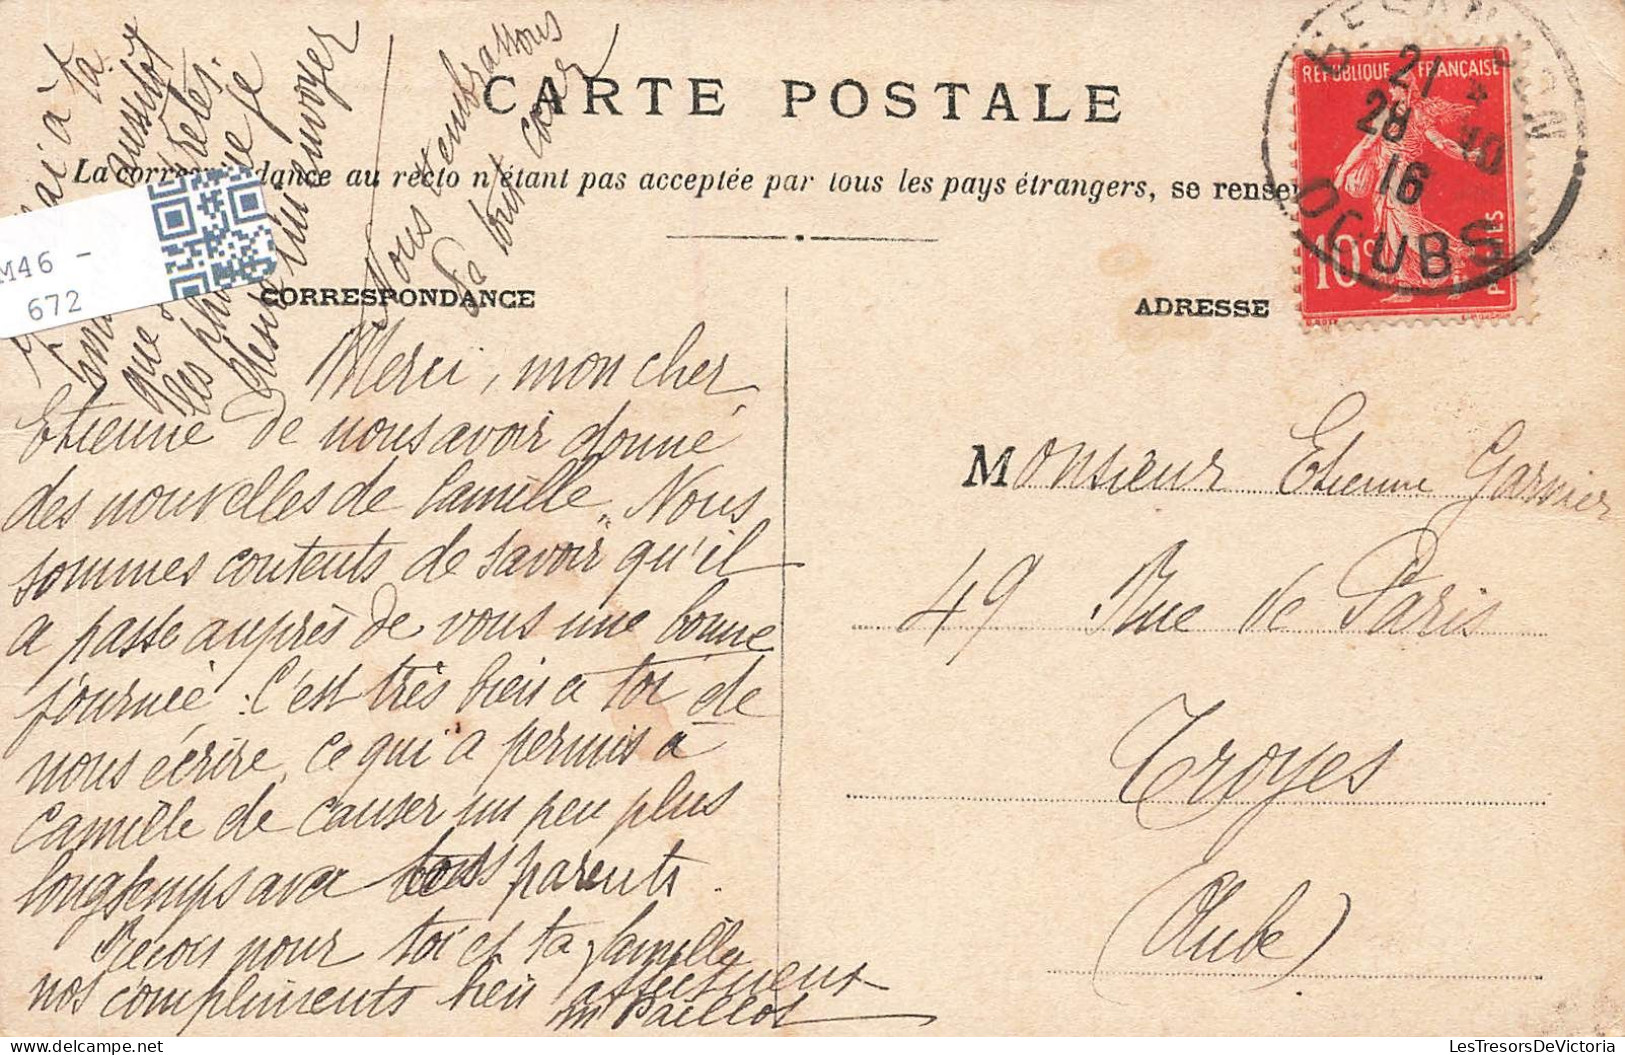 CARTE POSTALE
La correspondance au recto n'étant pas acceptée par tous les pays étrangers, se rensei
CORRESPONDANCE
ADRESSE
RÉPUBLIQUE FRANÇAISE
10c
POSTES
BESANCON
21 28
4 10
16
DOUBS
M46 -
672
Merci, mon cher
Etienne de nous avoir donné
des nouvelles de Camille. Nous
sommes contents de savoir qu'il
a passé auprès de vous une bonne
journée. C'est très bien à toi de
nous écrire, ce qui a permis à
Camille de causer un peu plus
longtemps avec tous parents.
Reçois pour toi et ta famille
nos compliments bien affectueux
M Paillot
ai à ta
aussitôt
que
les
que je
désire lui envoyer
Nous t'embrassons
de tout cœur
Monsieur Etienne Garnier
49 Rue de Paris
Troyes
(Aube)
LesTresorsDeVictoria